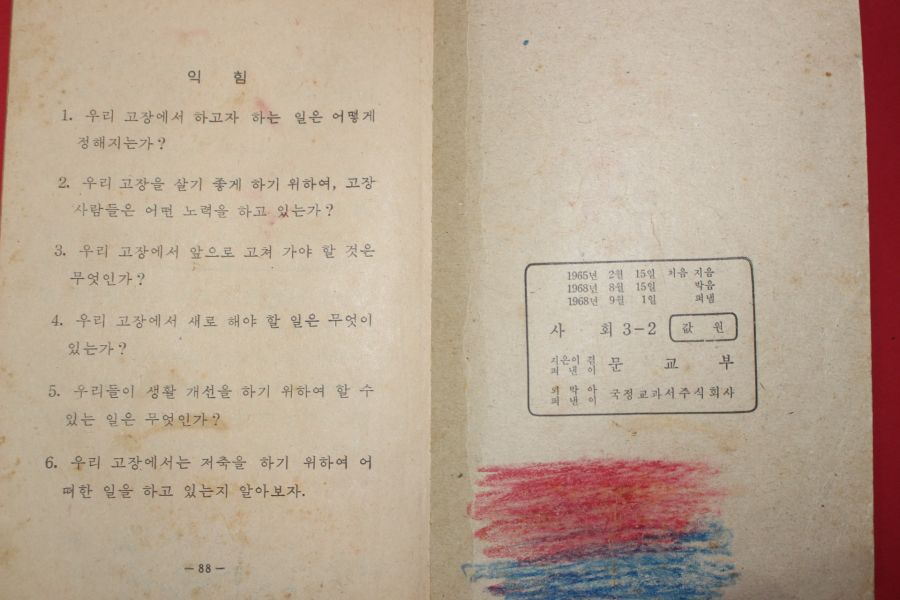 익 힘
1. 우리 고장에서 하고자 하는 일은 어떻게
정해지는가?
2. 우리 고장을 살기 좋게 하기 위하여, 고장
사람들은 어떤 노력을 하고 있는가?
3. 우리 고장에서 앞으로 고쳐 가야 할 것은
무엇인가?
4. 우리 고장에서 새로 해야 할 일은 무엇이
있는가?
5. 우리들이 생활 개선을 하기 위하여 할 수
있는 일은 무엇인가?
6. 우리 고장에서는 저축을 하기 위하여 어
떠한 일을 하고 있는지 알아보자.
— 88 —
1965년 2월 15일 처음 지음
1968년 8월 15일 박음
1968년 9월 1일 펴냄
사 회 3-2 값 원
지은이 겸
펴 낸 이 문 교 부
박 아
펴 낸 이 국정교과서주식회사